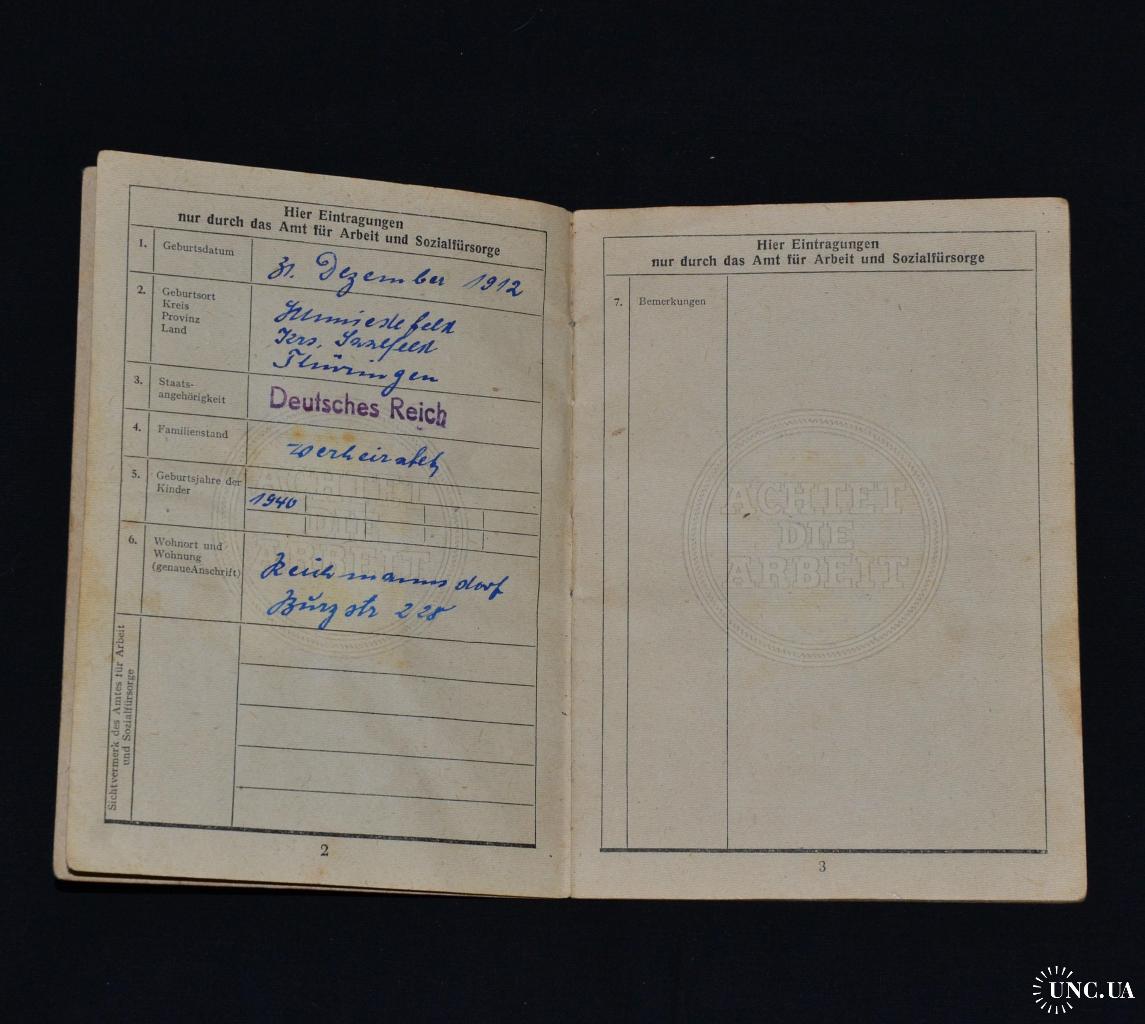 Hier Eintragungen
nur durch das Amt für Arbeit und Sozialfürsorge
1. Geburtsdatum
31. Dezember 1912
2. Geburtsort
Kreis
Provinz
Land
Schmiedefeld
Krs. Saalfeld
Thüringen
3. Staats-
angehörigkeit
Deutsches Reich
4. Familienstand
verheiratet
5. Geburtsjahre der
Kinder
1940
6. Wohnort und
Wohnung
(genaue Anschrift)
Reichmannsdorf
Burgstr 228
Sichtvermerk des Amtes für Arbeit
und Sozialfürsorge
ACHTET
DIE
ARBEIT
2
Hier Eintragungen
nur durch das Amt für Arbeit und Sozialfürsorge
7. Bemerkungen
ACHTET
DIE
ARBEIT
3
UNC.UA